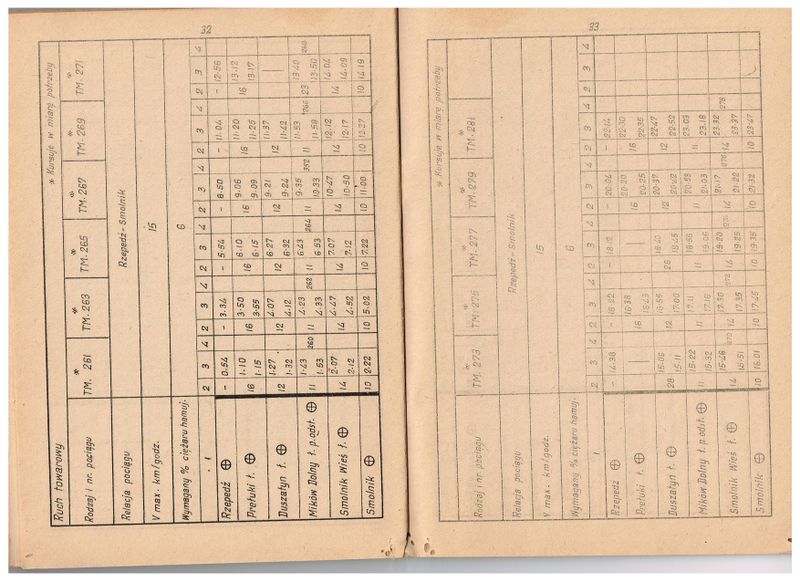 32
Ruch towarowy
* Kursuje w miarę potrzeby
Rodzaj i nr. pociągu TM. 261 TM. 263 TM. 265 TM. 267 TM. 269 TM. 271
Relacja pociągu Rzepedź - Smolnik
V max. km/godz. 15
Wymagany % ciężaru hamuj. 6
1 2 3 4 2 3 4 2 3 4 2 3 4 2 3 4 2 3 4
Rzepedź ⊕ - 0.54 - 3.34 - 5.54 - 8.50 - 11.04 - 12.56
Prełuki ł. ⊕ 16 1.10 16 3.50 16 6.10 16 9.06 16 11.20 16 13.12
1.15 3.55 6.15 9.09 11.25 13.17
Duszatyn ł. ⊕ 12 1.27 12 4.07 12 6.27 12 9.21 12 11.37 |
1.32 4.12 6.32 9.24 11.42 |
Mików Dolny ł. p.odst. ⊕ 11 1.43 260 11 4.23 262 11 6.43 264 11 9.35 352 11 11.53 23 13.40
1.53 4.33 6.53 10.33 11.59 13.50
Smolnik Wieś ł. ⊕ 14 2.07 14 4.47 14 7.07 14 10.47 14 12.12 14 14.04
2.12 4.52 7.12 10.50 12.17 14.09
Smolnik ⊕ 10 2.22 10 5.02 10 7.22 10 11.00 10 12.27 10 14.19
33
* Kursuje w miarę potrzeby
Rodzaj i nr. pociągu TM. 273 TM. 275 TM. 277 TM. 279 TM. 281
Relacja pociągu Rzepedź - Smolnik
V max. km/godz. 15
Wymagany % ciężaru hamuj. 6
1 2 3 4 2 3 4 2 3 4 2 3 4 2 3 4 2 3 4
Rzepedź ⊕ - 14.38 - 16.22 - 18.12 - 20.04 - 22.14
Prełuki ł. ⊕ 16 16.38 16 20.20 16 22.30
16.43 20.25 22.35
Duszatyn ł. ⊕ 28 15.06 12 16.55 28 18.40 12 20.37 12 22.47
15.11 17.00 18.45 20.42 22.52
Mików Dolny ł. p.odst. ⊕ 11 15.22 11 17.11 11 18.56 11 20.53 11 23.03
15.32 17.16 19.06 21.03 23.18
Smolnik Wieś ł. ⊕ 14 15.46 14 17.30 14 19.20 14 21.17 14 23.32 278
15.51 17.35 19.25 21.22 23.37
Smolnik ⊕ 10 16.01 10 17.45 10 19.35 10 21.32 10 23.47